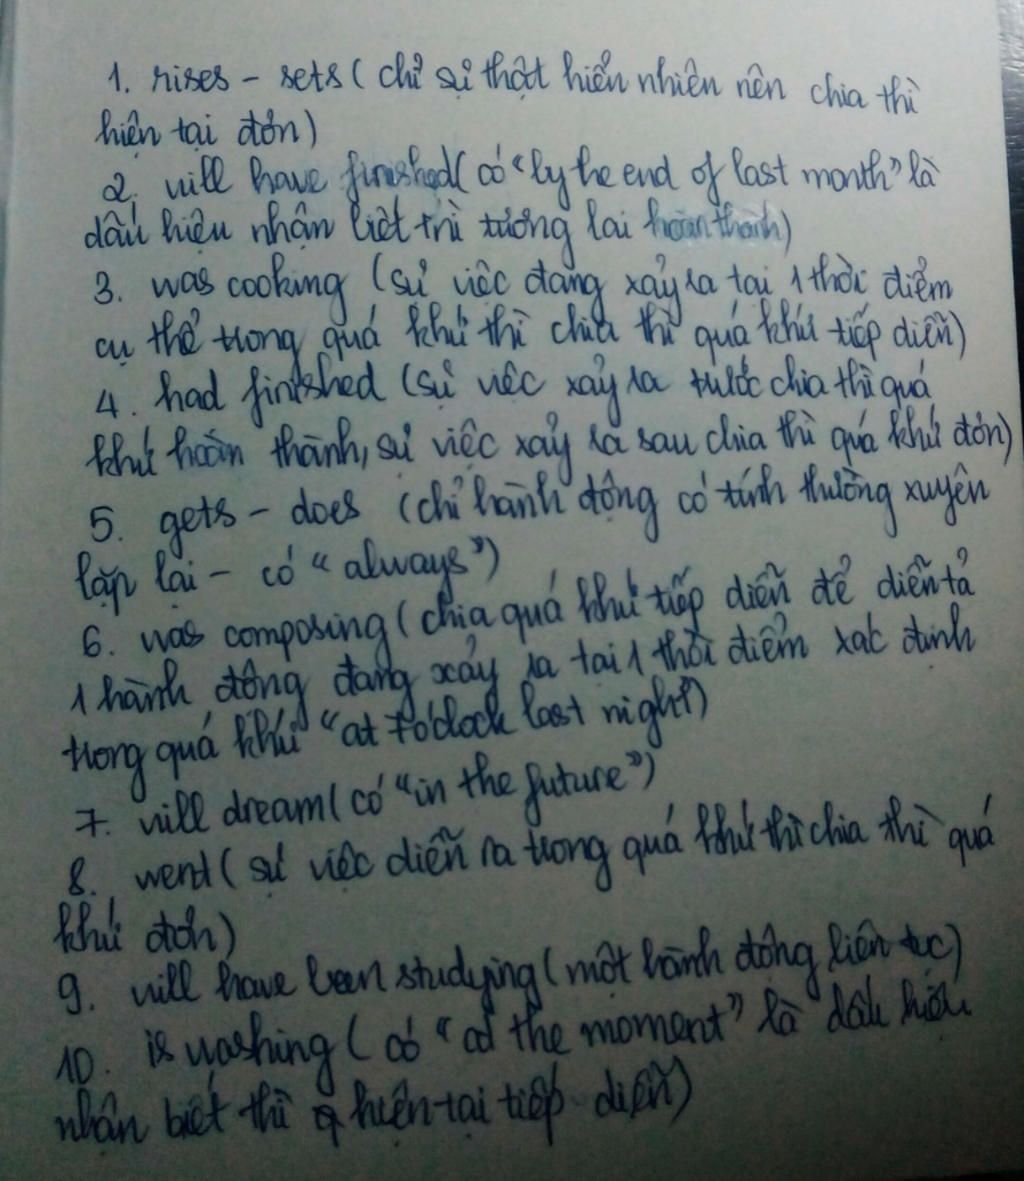 1. rises - sets ( chỉ sự thật hiển nhiên nên chia thì
hiện tại đơn)
2. will have finished( có "by the end of last month" là
dấu hiệu nhận biết thì tương lai hoàn thành)
3. was cooking (sự việc đang xảy ra tại 1 thời điểm
cụ thể trong quá khứ thì chia thì quá khứ tiếp diễn)
4. had finished (sự việc xảy ra trước chia thì quá
khứ hoàn thành, sự việc xảy ra sau chia thì quá khứ đơn)
5. gets - does (chỉ hành động có tính thường xuyên
lặp lại - có "always")
6. was composing ( chia quá khứ tiếp diễn để diễn tả
1 hành động đang xảy ra tại 1 thời điểm xác định
trong quá khứ "at 7 o'clock last night")
7. will dream ( có "in the future")
8. went ( sự việc diễn ra trong quá khứ thì chia thì quá
khứ đơn)
9. will have been studying (một hành động liên tục)
10. is washing ( có "at the moment" là dấu hiệu
nhận biết thì hiện tại tiếp diễn)